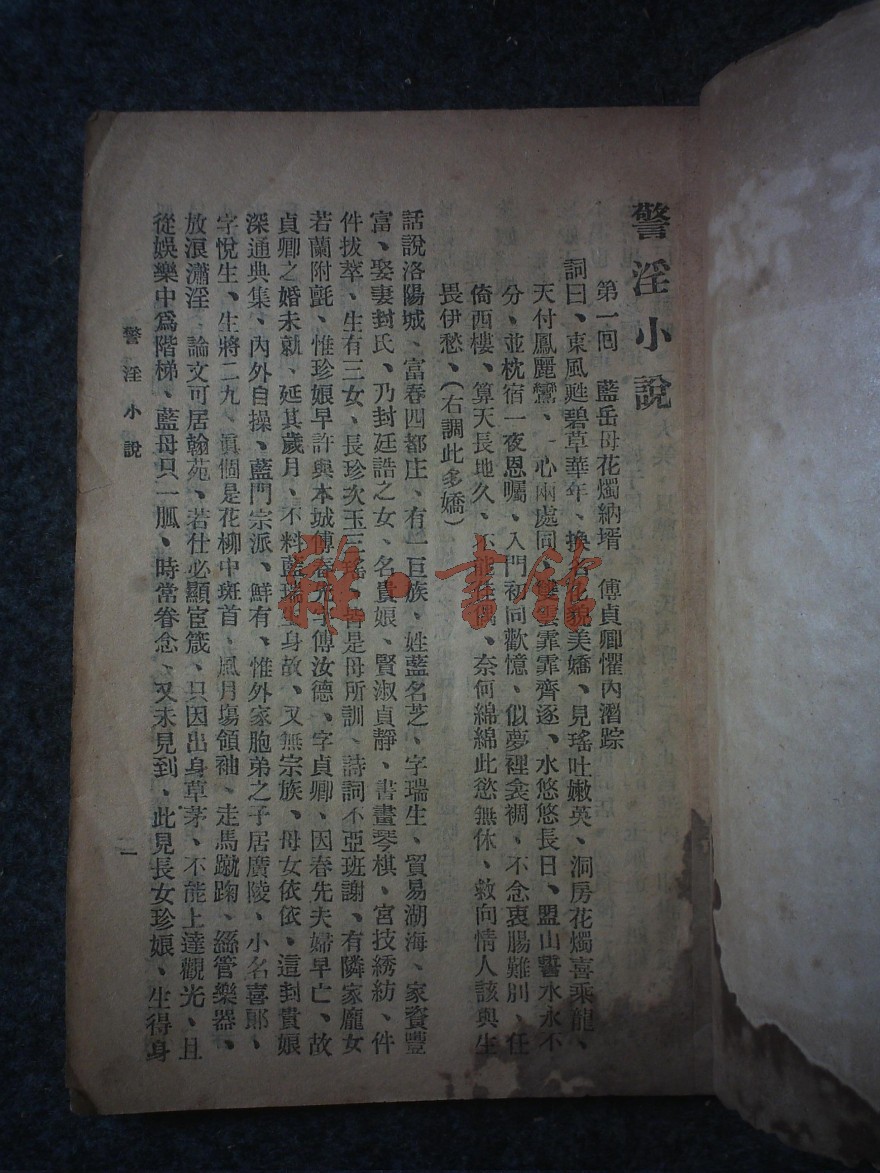 警淫小說
第一回　藍岳母花燭納壻　傅貞卿懼內潛踪
詞曰、東風甦碧草華年、換名花貌美嬌、見瑤吐嫩英、洞房花燭喜乘龍、
天付鳳麗鸞、一心兩處同　雲霏霏齊逐、水悠悠長日、盟山誓水永不
分、並枕宿一夜恩囑、入門初同歡憶、似夢裡衾裯、不念衷腸難別、任
倚西樓、算天長地久、不能任偶、奈何綿綿此慾無休、敘向情人該與生
畏伊愁、（右調此多嬌）
話說洛陽城、富春四都庄、有一巨族、姓藍名芝、字瑞生、貿易湖海、家資豐
富、娶妻封氏、乃封廷誥之女、名貴娘、賢淑貞靜、書畫琴棋、宮技綉紡、件
件拔萃、生有三女、長珍次玉三瑤、皆是母所訓、詩詞不亞班謝、有隣家龐女
若蘭附氈、惟珍娘早許與本城傅春先子傅汝德、字貞卿、因春先夫婦早亡、故
貞卿之婚未就、延其歲月、不料藍瑞生身故、又無宗族、母女依依、這封貴娘
深通典集、內外自操、藍門宗派、鮮有、惟外家胞弟之子居廣陵、小名喜郎、
字悅生、生將二九、眞個是花柳中班首、風月塲領袖、走馬蹴踘、絲管樂器、
放浪瀟淫　論文可居翰苑、若仕必顯宦箴、只因出身草茅、不能上達觀光、且
從娛樂中爲階梯、藍母只一胍、時常眷念、又未見到、此見長女珍娘、生得身
警淫小說
一
雜·書館